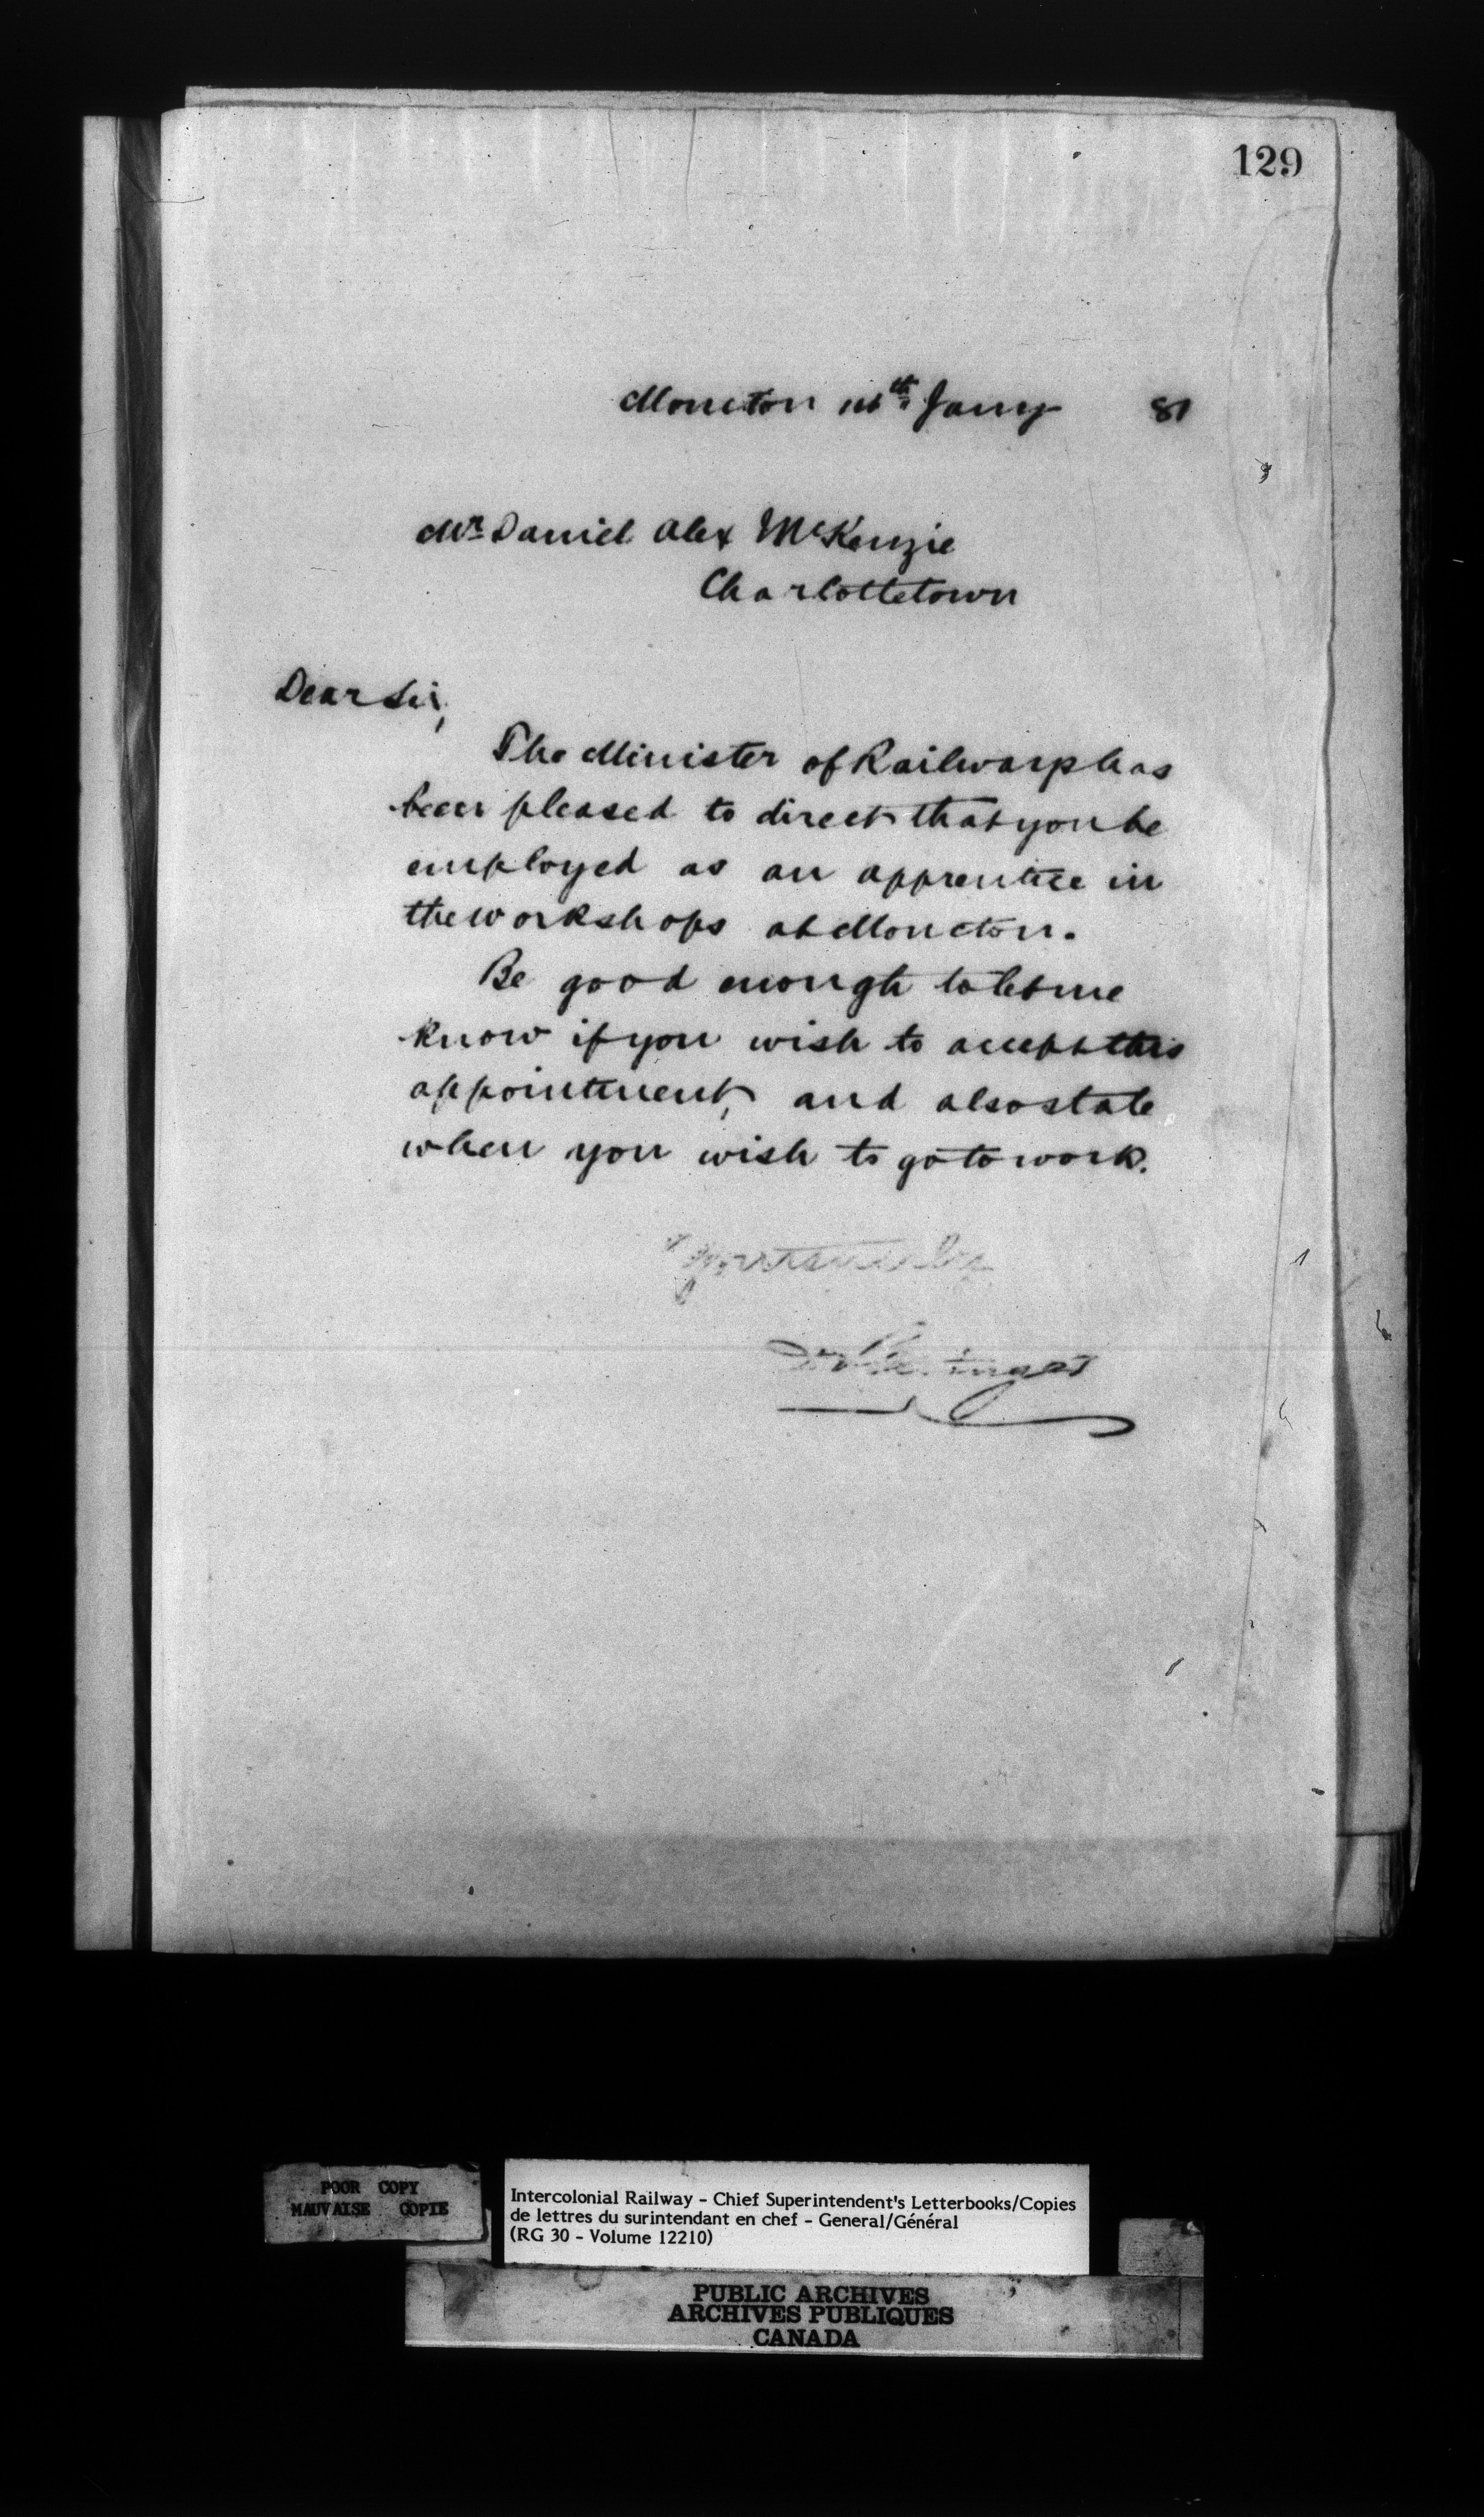 129
Moncton 14th Jany 81
Mr Daniel Alex McKenzie
Charlottetown
Dear Sir,
The Minister of Railways has
been pleased to direct that you be
employed as an apprentice in
the workshops at Moncton.
Be good enough to let me
know if you wish to accept this
appointment, and also state
when you wish to go to work.
Yours truly
POOR COPY
MAUVAISE COPIE
Intercolonial Railway - Chief Superintendent's Letterbooks/Copies
de lettres du surintendant en chef - General/Général
(RG 30 - Volume 12210)
PUBLIC ARCHIVES
ARCHIVES PUBLIQUES
CANADA